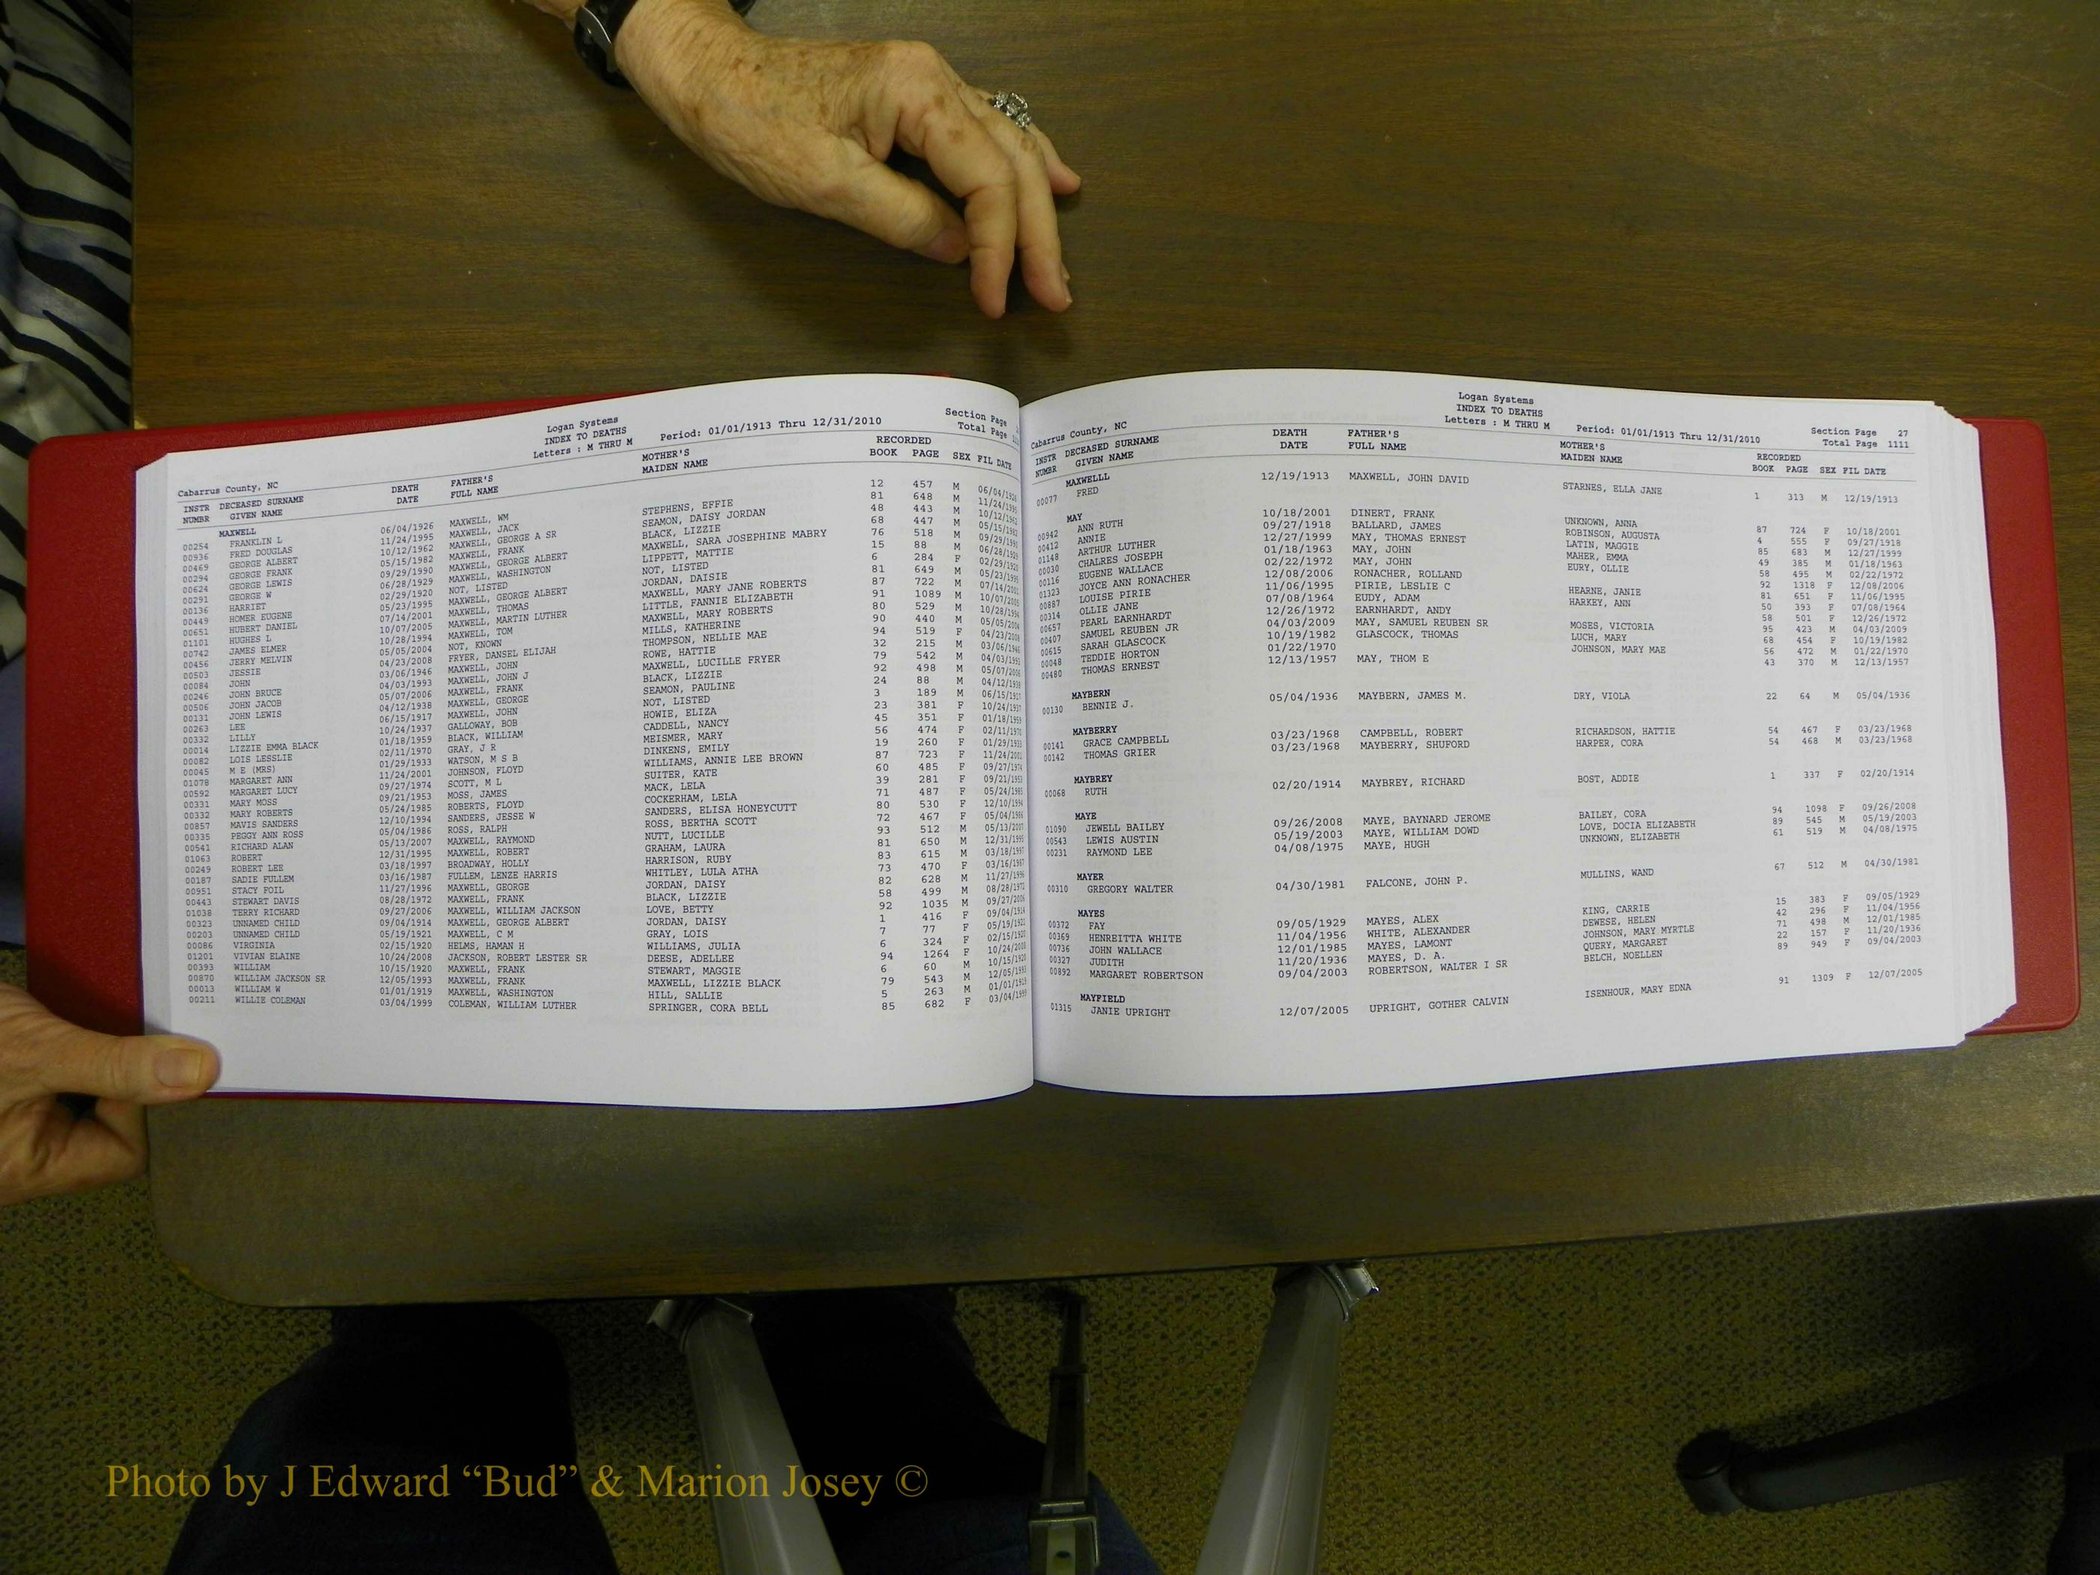 Logan Systems
INDEX TO DEATHS
Letters : M THRU M Period: 01/01/1913 Thru 12/31/2010
Section Page
Total Page
Cabarrus County, NC
INSTR DECEASED SURNAME DEATH FATHER'S MOTHER'S RECORDED
NUMBR GIVEN NAME DATE FULL NAME MAIDEN NAME BOOK PAGE SEX FIL DATE
MAXWELL
00254 FRANKLIN L 06/04/1926 MAXWELL, WM 12 457 M 06/04/1926
00936 FRED DOUGLAS 11/24/1995 MAXWELL, JACK STEPHENS, EFFIE 81 648 M 11/24/1995
00469 GEORGE ALBERT 10/12/1962 MAXWELL, GEORGE A SR SEAMON, DAISY JORDAN 48 443 M 10/12/1962
00294 GEORGE FRANK 05/15/1982 MAXWELL, FRANK BLACK, LIZZIE 68 447 M 05/15/1982
00624 GEORGE LEWIS 09/29/1990 MAXWELL, GEORGE ALBERT MAXWELL, SARA JOSEPHINE MABRY 76 518 M 09/29/1990
00291 GEORGE W 06/28/1929 MAXWELL, WASHINGTON LIPPETT, MATTIE 15 88 M 06/28/1929
00136 HARRIET 02/29/1920 NOT, LISTED NOT, LISTED 6 284 F 02/29/1920
00449 HOMER EUGENE 05/23/1995 MAXWELL, GEORGE ALBERT JORDAN, DAISIE 81 649 M 05/23/1995
00651 HUBERT DANIEL 07/14/2001 MAXWELL, THOMAS MAXWELL, MARY JANE ROBERTS 87 722 M 07/14/2001
01101 HUGHES L 10/07/2005 MAXWELL, MARTIN LUTHER LITTLE, FANNIE ELIZABETH 91 1089 M 10/07/2005
00742 JAMES ELMER 10/28/1994 MAXWELL, TOM MAXWELL, MARY ROBERTS 80 529 M 10/28/1994
00456 JERRY MELVIN 05/05/2004 NOT, KNOWN MILLS, KATHERINE 90 440 M 05/05/2004
00503 JESSIE 04/23/2008 FRYER, DANSEL ELIJAH THOMPSON, NELLIE MAE 94 519 F 04/23/2008
00084 JOHN 03/06/1946 MAXWELL, JOHN ROWE, HATTIE 32 215 M 03/06/1946
00246 JOHN BRUCE 04/03/1993 MAXWELL, JOHN J MAXWELL, LUCILLE FRYER 79 542 M 04/03/1993
00506 JOHN JACOB 05/07/2006 MAXWELL, FRANK BLACK, LIZZIE 92 498 M 05/07/2006
00131 JOHN LEWIS 04/12/1938 MAXWELL, GEORGE SEAMON, PAULINE 24 88 M 04/12/1938
00263 LEE 06/15/1917 MAXWELL, JOHN NOT, LISTED 3 189 M 06/15/1917
00332 LILLY 10/24/1937 GALLOWAY, BOB HOWIE, ELIZA 23 381 F 10/24/1937
00014 LIZZIE EMMA BLACK 01/18/1959 BLACK, WILLIAM CADDELL, NANCY 45 351 F 01/18/1959
00082 LOIS LESSLIE 02/11/1970 GRAY, J R MEISMER, MARY 56 474 F 02/11/1970
00045 M E (MRS) 01/29/1933 WATSON, M S B DINKENS, EMILY 19 260 F 01/29/1933
01078 MARGARET ANN 11/24/2001 JOHNSON, FLOYD WILLIAMS, ANNIE LEE BROWN 87 723 F 11/24/2001
00592 MARGARET LUCY 09/27/1974 SCOTT, M L SUITER, KATE 60 485 F 09/27/1974
00331 MARY MOSS 09/21/1953 MOSS, JAMES MACK, LELA 39 281 F 09/21/1953
00332 MARY ROBERTS 05/24/1985 ROBERTS, FLOYD COCKERHAM, LELA 71 487 F 05/24/1985
00857 MAVIS SANDERS 12/10/1994 SANDERS, JESSE W SANDERS, ELISA HONEYCUTT 80 530 F 12/10/1994
00335 PEGGY ANN ROSS 05/04/1986 ROSS, RALPH ROSS, BERTHA SCOTT 72 467 F 05/04/1986
00541 RICHARD ALAN 05/13/2007 MAXWELL, RAYMOND NUTT, LUCILLE 93 512 M 05/13/2007
01063 ROBERT 12/31/1995 MAXWELL, ROBERT GRAHAM, LAURA 81 650 M 12/31/1995
00249 ROBERT LEE 03/18/1997 BROADWAY, HOLLY HARRISON, RUBY 83 615 M 03/18/1997
00187 SADIE FULLEM 03/16/1987 FULLEM, LENZE HARRIS WHITLEY, LULA ATHA 73 470 F 03/16/1987
00951 STACY FOIL 11/27/1996 MAXWELL, GEORGE JORDAN, DAISY 82 628 M 11/27/1996
00443 STEWART DAVIS 08/28/1972 MAXWELL, FRANK BLACK, LIZZIE 58 499 M 08/28/1972
01038 TERRY RICHARD 09/27/2006 MAXWELL, WILLIAM JACKSON LOVE, BETTY 92 1035 M 09/27/2006
00323 UNNAMED CHILD 09/04/1914 MAXWELL, GEORGE ALBERT JORDAN, DAISY 1 416 F 09/04/1914
00203 UNNAMED CHILD 05/19/1921 MAXWELL, C M GRAY, LOIS 7 77 F 05/19/1921
00086 VIRGINIA 02/15/1920 HELMS, HAMAN H WILLIAMS, JULIA 6 324 F 02/15/1920
01201 VIVIAN ELAINE 10/24/2008 JACKSON, ROBERT LESTER SR DEESE, ADELLEE 94 1264 F 10/24/2008
00393 WILLIAM 10/15/1920 MAXWELL, FRANK STEWART, MAGGIE 6 60 M 10/15/1920
00870 WILLIAM JACKSON SR 12/05/1993 MAXWELL, FRANK MAXWELL, LIZZIE BLACK 79 543 M 12/05/1993
00013 WILLIAM W 01/01/1919 MAXWELL, WASHINGTON HILL, SALLIE 5 263 M 01/01/1919
00211 WILLIE COLEMAN 03/04/1999 COLEMAN, WILLIAM LUTHER SPRINGER, CORA BELL 85 682 F 03/04/1999
Logan Systems
INDEX TO DEATHS
Letters : M THRU M Period: 01/01/1913 Thru 12/31/2010
Section Page 27
Total Page 1111
Cabarrus County, NC
INSTR DECEASED SURNAME DEATH FATHER'S MOTHER'S RECORDED
NUMBR GIVEN NAME DATE FULL NAME MAIDEN NAME BOOK PAGE SEX FIL DATE
MAXWELLL
00077 FRED 12/19/1913 MAXWELL, JOHN DAVID STARNES, ELLA JANE 1 313 M 12/19/1913
MAY
00942 ANN RUTH 10/18/2001 DINERT, FRANK UNKNOWN, ANNA 87 724 F 10/18/2001
00412 ANNIE 09/27/1918 BALLARD, JAMES ROBINSON, AUGUSTA 4 555 F 09/27/1918
01148 ARTHUR LUTHER 12/27/1999 MAY, THOMAS ERNEST LATIN, MAGGIE 85 683 M 12/27/1999
00030 CHALRES JOSEPH 01/18/1963 MAY, JOHN MAHER, EMMA 49 385 M 01/18/1963
00116 EUGENE WALLACE 02/22/1972 MAY, JOHN EURY, OLLIE 58 495 M 02/22/1972
01323 JOYCE ANN RONACHER 12/08/2006 RONACHER, ROLLAND 92 1318 F 12/08/2006
00887 LOUISE PIRIE 11/06/1995 PIRIE, LESLIE C HEARNE, JANIE 81 651 F 11/06/1995
00314 OLLIE JANE 07/08/1964 EUDY, ADAM HARKEY, ANN 50 393 F 07/08/1964
00657 PEARL EARNHARDT 12/26/1972 EARNHARDT, ANDY 58 501 F 12/26/1972
00407 SAMUEL REUBEN JR 04/03/2009 MAY, SAMUEL REUBEN SR MOSES, VICTORIA 95 423 M 04/03/2009
00615 SARAH GLASCOCK 10/19/1982 GLASCOCK, THOMAS LUCH, MARY 68 454 F 10/19/1982
00048 TEDDIE HORTON 01/22/1970 JOHNSON, MARY MAE 56 472 M 01/22/1970
00480 THOMAS ERNEST 12/13/1957 MAY, THOM E 43 370 M 12/13/1957
MAYBERN
00130 BENNIE J. 05/04/1936 MAYBERN, JAMES M. DRY, VIOLA 22 64 M 05/04/1936
MAYBERRY
00141 GRACE CAMPBELL 03/23/1968 CAMPBELL, ROBERT RICHARDSON, HATTIE 54 467 F 03/23/1968
00142 THOMAS GRIER 03/23/1968 MAYBERRY, SHUFORD HARPER, CORA 54 468 M 03/23/1968
MAYBREY
00068 RUTH 02/20/1914 MAYBREY, RICHARD BOST, ADDIE 1 337 F 02/20/1914
MAYE
01090 JEWELL BAILEY 09/26/2008 MAYE, BAYNARD JEROME BAILEY, CORA 94 1098 F 09/26/2008
00543 LEWIS AUSTIN 05/19/2003 MAYE, WILLIAM DOWD LOVE, DOCIA ELIZABETH 89 545 M 05/19/2003
00231 RAYMOND LEE 04/08/1975 MAYE, HUGH UNKNOWN, ELIZABETH 61 519 M 04/08/1975
MAYER
00310 GREGORY WALTER 04/30/1981 FALCONE, JOHN P. MULLINS, WAND 67 512 M 04/30/1981
MAYES
00372 FAY 09/05/1929 MAYES, ALEX KING, CARRIE 15 383 F 09/05/1929
00369 HENREITTA WHITE 11/04/1956 WHITE, ALEXANDER DEWESE, HELEN 42 296 F 11/04/1956
00736 JOHN WALLACE 12/01/1985 MAYES, LAMONT JOHNSON, MARY MYRTLE 71 498 M 12/01/1985
00327 JUDITH 11/20/1936 MAYES, D. A. QUERY, MARGARET 22 157 F 11/20/1936
00892 MARGARET ROBERTSON 09/04/2003 ROBERTSON, WALTER I SR BELCH, NOELLEN 89 949 F 09/04/2003
MAYFIELD
01315 JANIE UPRIGHT 12/07/2005 UPRIGHT, GOTHER CALVIN ISENHOUR, MARY EDNA 91 1309 F 12/07/2005
Photo by J Edward “Bud” & Marion Josey ©